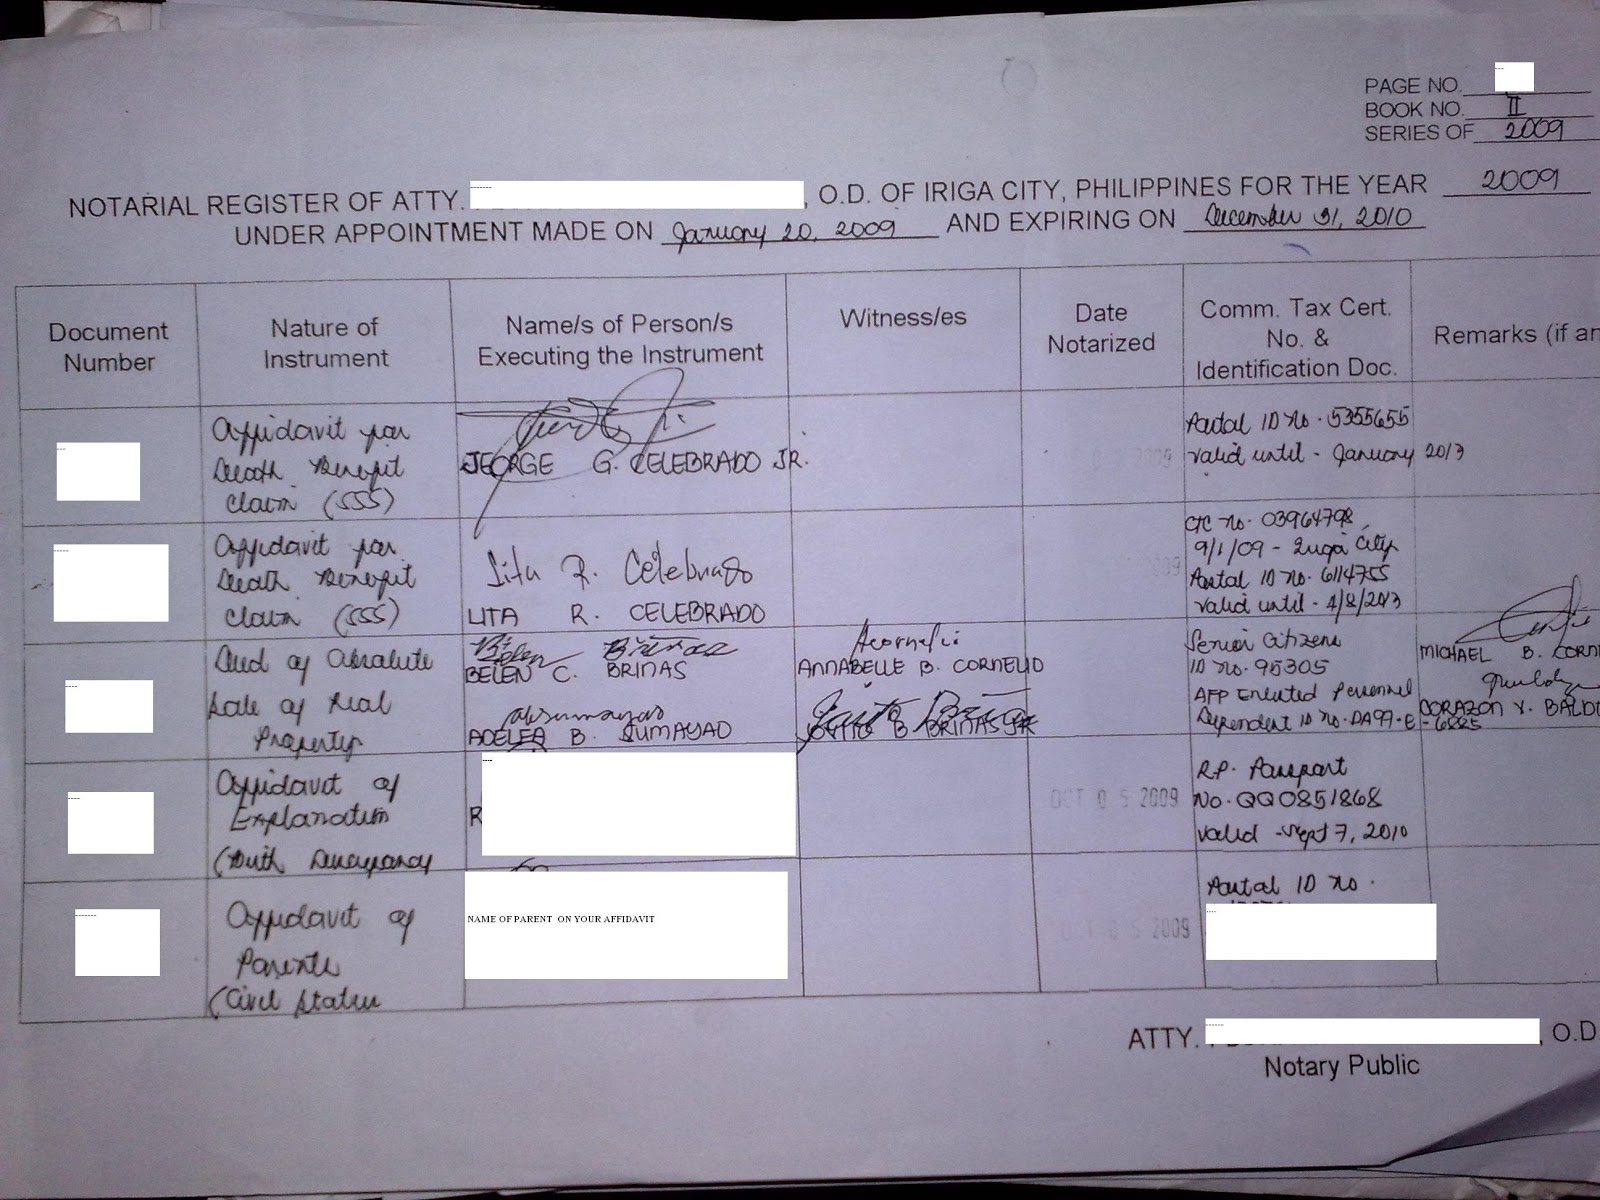 PAGE NO.
BOOK NO. II
SERIES OF 2009
NOTARIAL REGISTER OF ATTY. , O.D. OF IRIGA CITY, PHILIPPINES FOR THE YEAR 2009
UNDER APPOINTMENT MADE ON January 20, 2009 AND EXPIRING ON December 31, 2010
Document Number
Nature of Instrument
Name/s of Person/s Executing the Instrument
Witness/es
Date Notarized
Comm. Tax Cert. No. & Identification Doc.
Remarks (if an
Affidavit for
Death Benefit
Claim (SSS)
JEORGE G. CELEBRADO JR.
2009
Postal ID No. 5355655
Valid until - January 2013
Affidavit for
Death Benefit
Claim (SSS)
Lita R. Celebrado
LITA R. CELEBRADO
2009
CTC No. 03964798
9/1/09 - Iriga City
Postal ID No. 6114755
Valid until - 4/8/2013
Deed of Absolute
Sale of Real
Property
Belen Briñas
BELEN C. BRINAS
ADELFA B. SUMAYAO
ANNABELLE B. CORNELIO
B. BRINAS JR.
Senior Citizens
ID No. 95305
AFP Enlisted Personnel
Dependent ID No. DA97-E-6825
MICHAEL B. CORN
CORAZON Y. BALD
Affidavit of
Explanation
(Birth Discrepancy
R
OCT 05 2009
R.P. Passport
No. QQ0851868
Valid - Sept 7, 2010
Affidavit of
Parents
(Civil Status
NAME OF PARENT ON YOUR AFFIDAVIT
OCT 05 2009
Postal ID No.
ATTY. , O.D
Notary Public